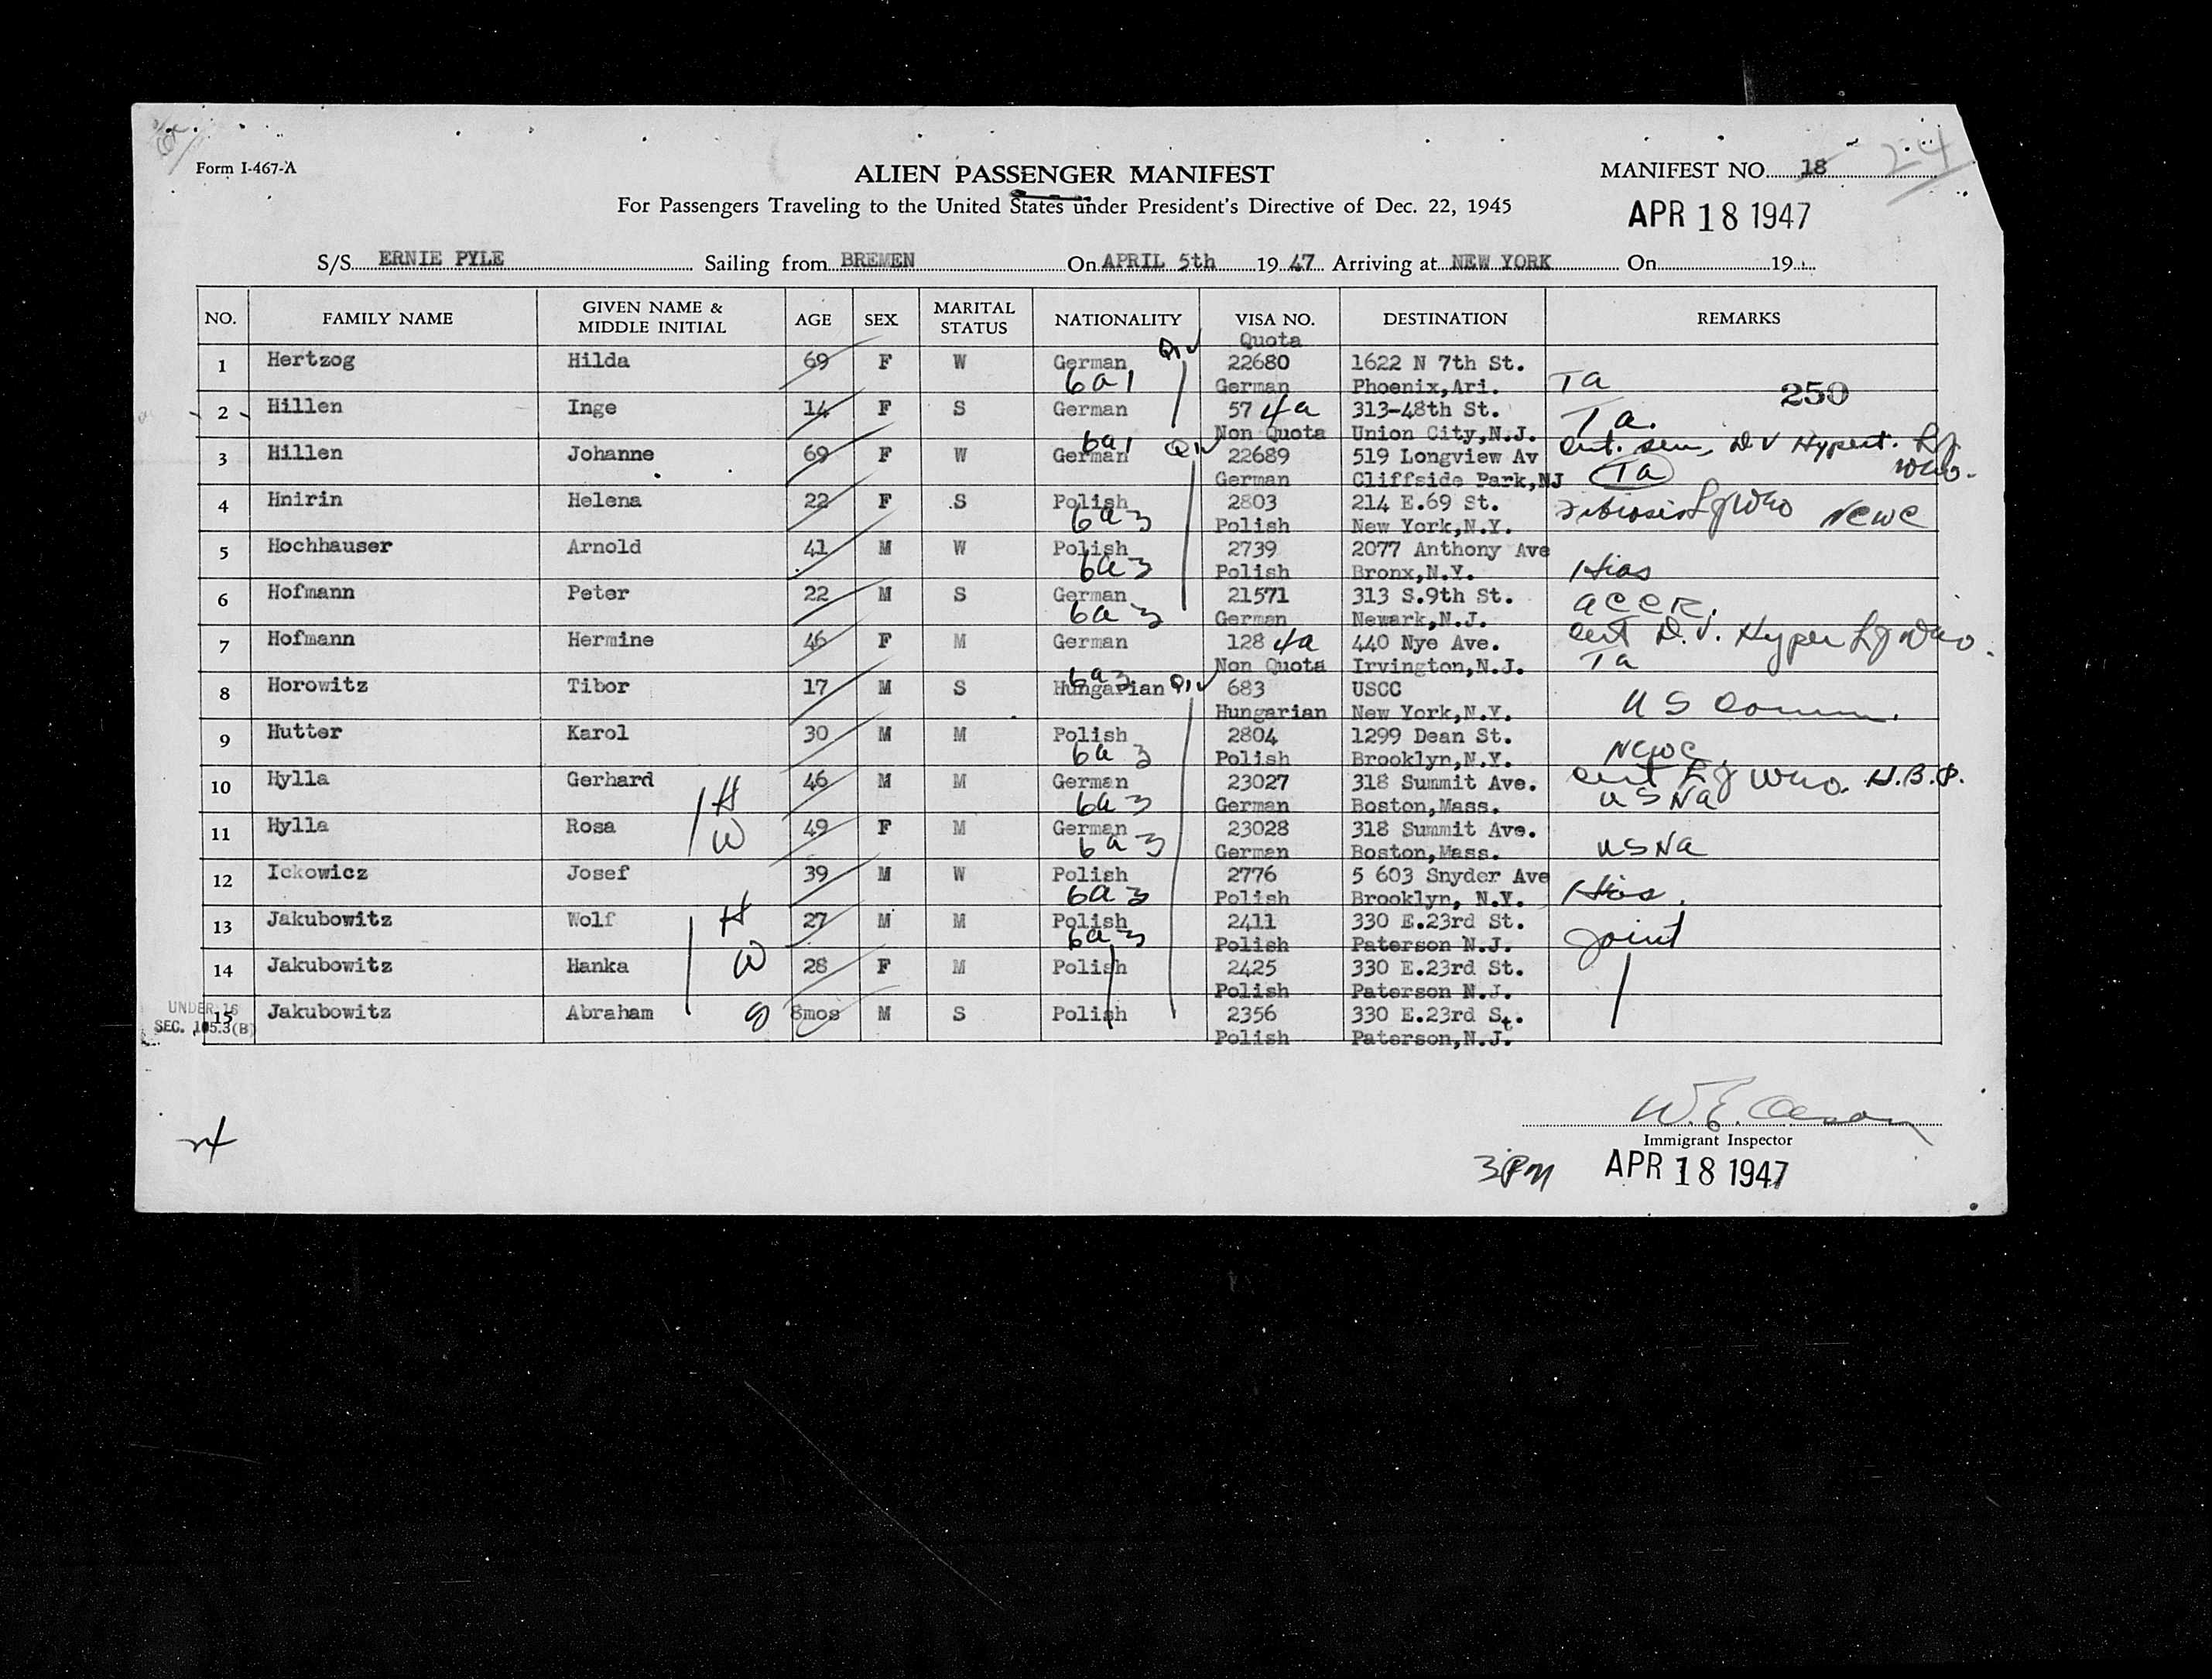 Form I-467-A
ALIEN PASSENGER MANIFEST
MANIFEST NO. 18 24
For Passengers Traveling to the United States under President's Directive of Dec. 22, 1945
APR 18 1947
S/S ERNIE PYLE Sailing from BREMEN On APRIL 5th 19 47 Arriving at NEW YORK On 19
NO. FAMILY NAME GIVEN NAME & MIDDLE INITIAL AGE SEX MARITAL STATUS NATIONALITY VISA NO. DESTINATION REMARKS
Quota
1 Hertzog Hilda 69 F W German 22680 1622 N 7th St.
6a1 German Phoenix,Ari. Ta 250
2 Hillen Inge 14 F S German 57 4a 313-48th St. Ta.
Non Quota Union City,N.J.
3 Hillen Johanne 69 F W German 6a1 22689 519 Longview Av Cert. sen, D V Hypert.
German Cliffside Park,NJ Ta
4 Hnirin Helena 22 F S Polish 2803 214 E.69 St. NCWC
6a3 Polish New York,N.Y.
5 Hochhauser Arnold 41 M W Polish 2739 2077 Anthony Ave
6a3 Polish Bronx,N.Y. Hias
6 Hofmann Peter 22 M S German 21571 313 S.9th St. ACCR.
6a3 German Newark,N.J.
7 Hofmann Hermine 46 F M German 128 4a 440 Nye Ave. Cert D.V. Hyper
Non Quota Irvington,N.J. Ta
8 Horowitz Tibor 17 M S Hungarian 6a3 683 USCC
Hungarian New York,N.Y. US Comm.
9 Hutter Karol 30 M M Polish 2804 1299 Dean St.
6a3 Polish Brooklyn,N.Y. NCWC.
10 Hylla Gerhard H 46 M M German 23027 318 Summit Ave. Cert H.B.P.
6a3 German Boston,Mass. USNA
11 Hylla Rosa W 49 F M German 23028 318 Summit Ave.
6a3 German Boston,Mass. USNA
12 Ickowicz Josef 39 M W Polish 2776 5 603 Snyder Ave
6a3 Polish Brooklyn, N.Y. Hias.
13 Jakubowitz Wolf H 27 M M Polish 2411 330 E.23rd St.
6a3 Polish Paterson N.J. Joint
14 Jakubowitz Hanka W 28 F M Polish 2425 330 E.23rd St.
Polish Paterson N.J.
UNDER 16
SEC. 105.3(B)
15 Jakubowitz Abraham S 8mos M S Polish 2356 330 E.23rd St.
Polish Paterson,N.J.
W.E.
Immigrant Inspector
3PM APR 18 1947